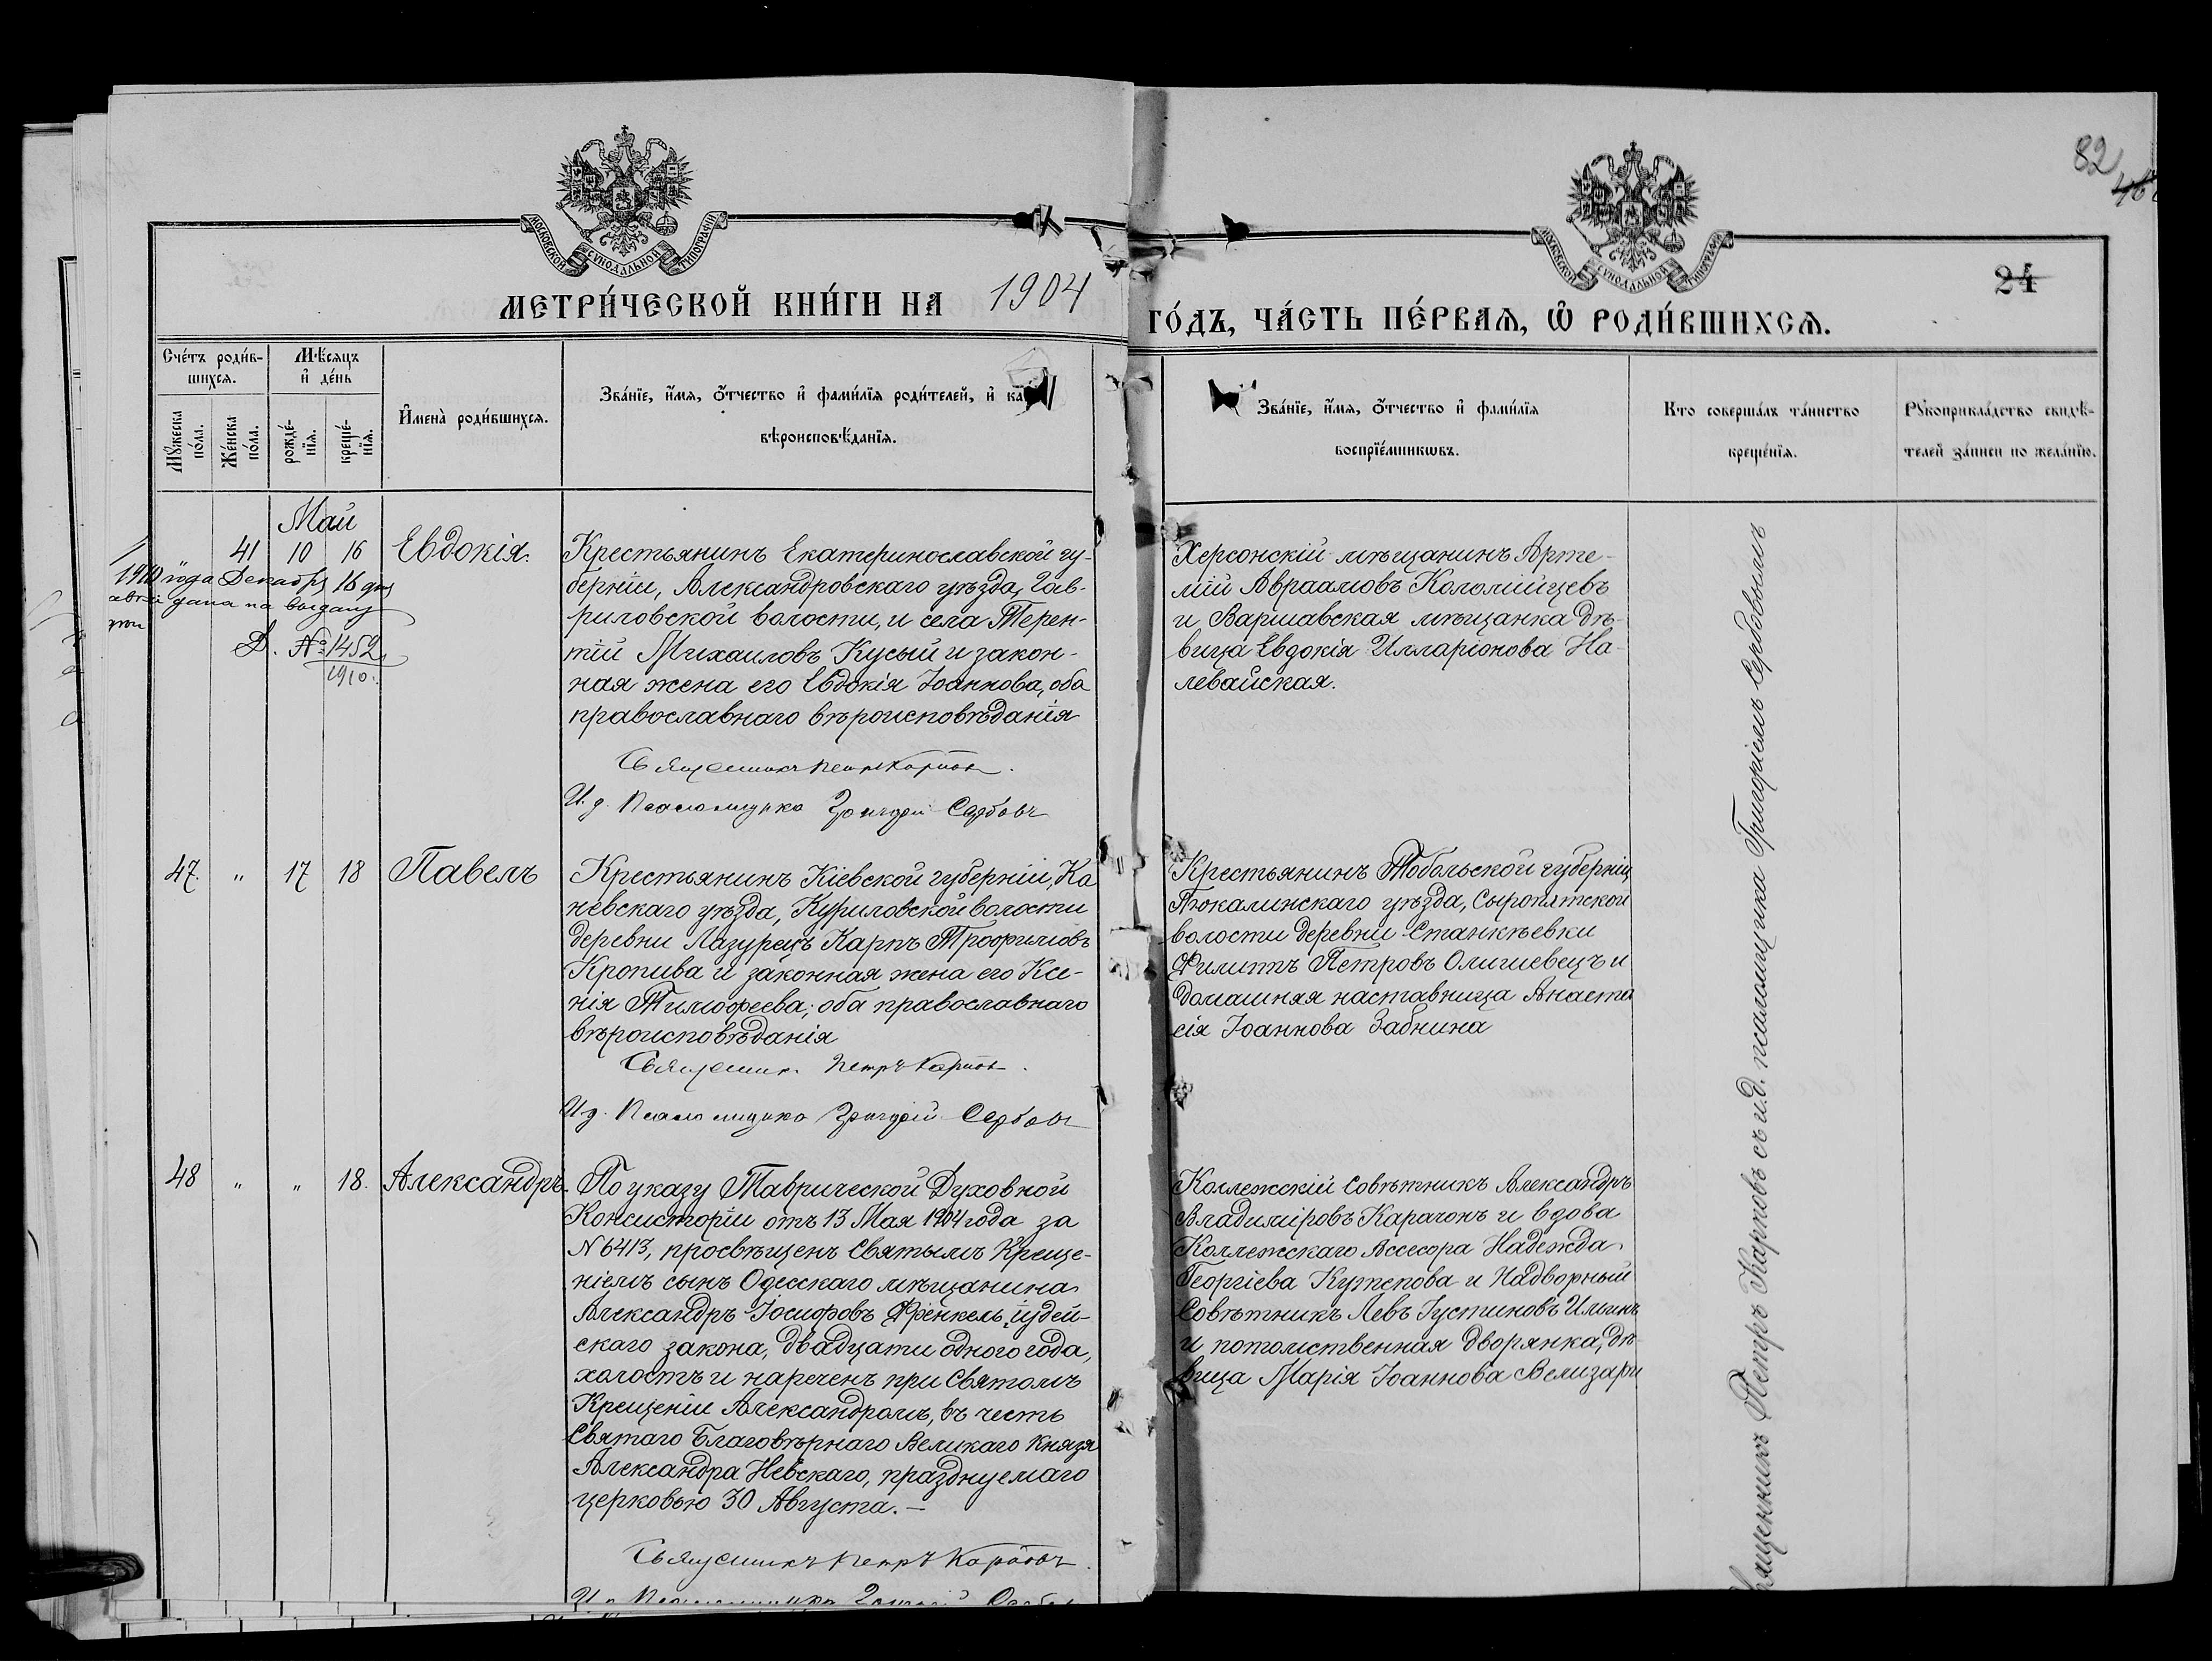 82
24
МОСКОВСКОЙ СѴНОДАЛЬНОЙ ТИПОГРАФІИ
МОСКОВСКОЙ СѴНОДАЛЬНОЙ ТИПОГРАФІИ
МЕТРИ́ЧЕСКОЙ КНИ́ГИ НА 1904
ГО́ДЪ, ЧА́СТЬ ПЕ́РВАѦ, Ѡ҆ РОДИ́ВШИХСѦ.
Сче́тъ роди́в-
шихсѧ.
Мѣ́сѧцъ
и҆ де́нь
Мꙋ́жеска
по́ла.
Же́нска
по́ла.
рожде́-
нїѧ.
креще́-
нїѧ.
И҆мена̀ роди́вшихсѧ.
Зва́нїе, и҆́мѧ, ѻ҆́тчество и҆ фами́лїѧ роди́телей, и҆ ка
вѣроисповѣ́данїѧ.
Зва́нїе, и҆́мѧ, ѻ҆́тчество и҆ фами́лїѧ
воспрїе́мникѡвъ.
Кто̀ соверша́лъ та́инство
креще́нїѧ.
Рꙋкоприкла́дство свидѣ́-
телей за́писи по жела́нїю.
Май
41 10 16 Евдокія.
1910 года Декабря 16 дня
дана на выдачу
Д. № 1452
1910
Крестьянинъ Екатеринославской гу-
берніи, Александровскаго уѣзда, Гав-
риловской волости, и села Терен-
тій Михаиловъ Кусый и закон-
ная жена его Евдокія Іоаннова, оба
православнаго вѣроисповѣданія
Священникъ Петръ Карповъ.
И. д. Псаломщика Григорій Сербовъ
Херсонскій мѣщанинъ Арте-
мій Авраамовъ Коломійцевъ
и Варшавская мѣщанка дѣ-
вица Евдокія Илларіонова На-
левайская.
47. " 17 18 Павелъ
Крестьянинъ Кіевской губерніи, Ка
невскаго уѣзда, Куриловской волости
деревни Лазурецъ Карпъ Трофимовъ
Кропива и законная жена его Ксе-
нія Тимофеева; оба православнаго
вѣроисповѣданія
Священник Петръ Карповъ.
И. д. Псаломщика Григорій Сербовъ
Крестьянинъ Тобольской губерніи
Тюкалинскаго уѣзда, Сыропятской
волости деревни Станкѣевки
Филиппъ Петровъ Олишевецъ и
домашняя наставница Анаста
сія Іоаннова Забнина
48 " " 18. Александръ.
По указу Таврической Духовной
Консисторіи отъ 13 Мая 1904 года за
N 6413, просвѣщенъ Святымъ Креще-
ніемъ сынъ Одесскаго мѣщанина
Александръ Іосифовъ Френкель, іудей-
скаго закона, двадцати одного года,
холостъ и нареченъ при Святомъ
Крещеніи Александромъ, въ честь
Святаго Благовѣрнаго Великаго Князя
Александра Невскаго, празднуемаго
церковью 30 Августа. —
Священникъ Петръ Карповъ.
И. д. Псаломщика Григорій Сербовъ
Коллежскій Совѣтникъ Александръ
Владиміровъ Карачонъ и вдова
Коллежскаго Ассесора Надежда
Георгіева Кутепова и Надворный
Совѣтникъ Левъ Густиновъ
и потомственная дворянка, дѣ-
вица Марія Іоаннова Велизари
Священникъ Петръ Карповъ съ и.д. псаломщика Григоріемъ Сербовымъ